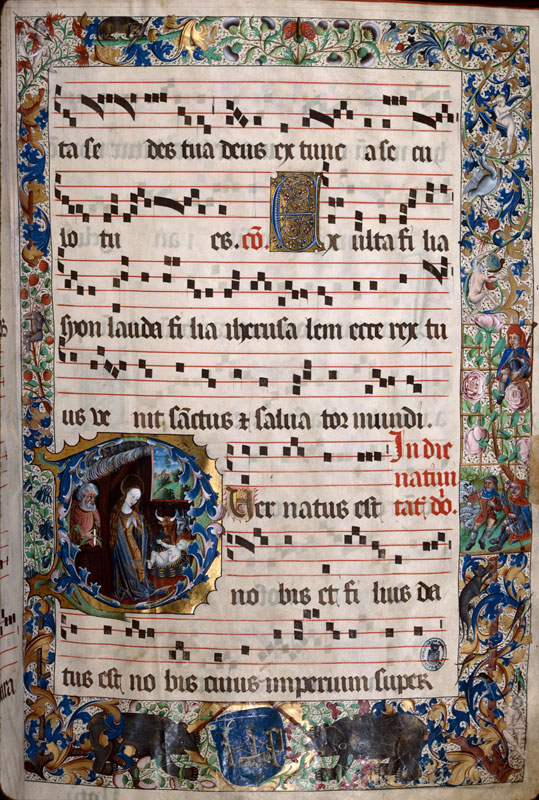 ta se des tua deus ex tunc a se cu
lo tu es. cō. Exulta fi lia
syon lauda fi lia iherusa lem ecce rex tu
us ve nit sāctus & salua tor mundi.
In die
natiui
Puer natus est tat dō.
no bis et fi lius da
tus est no bis cuius imperium super